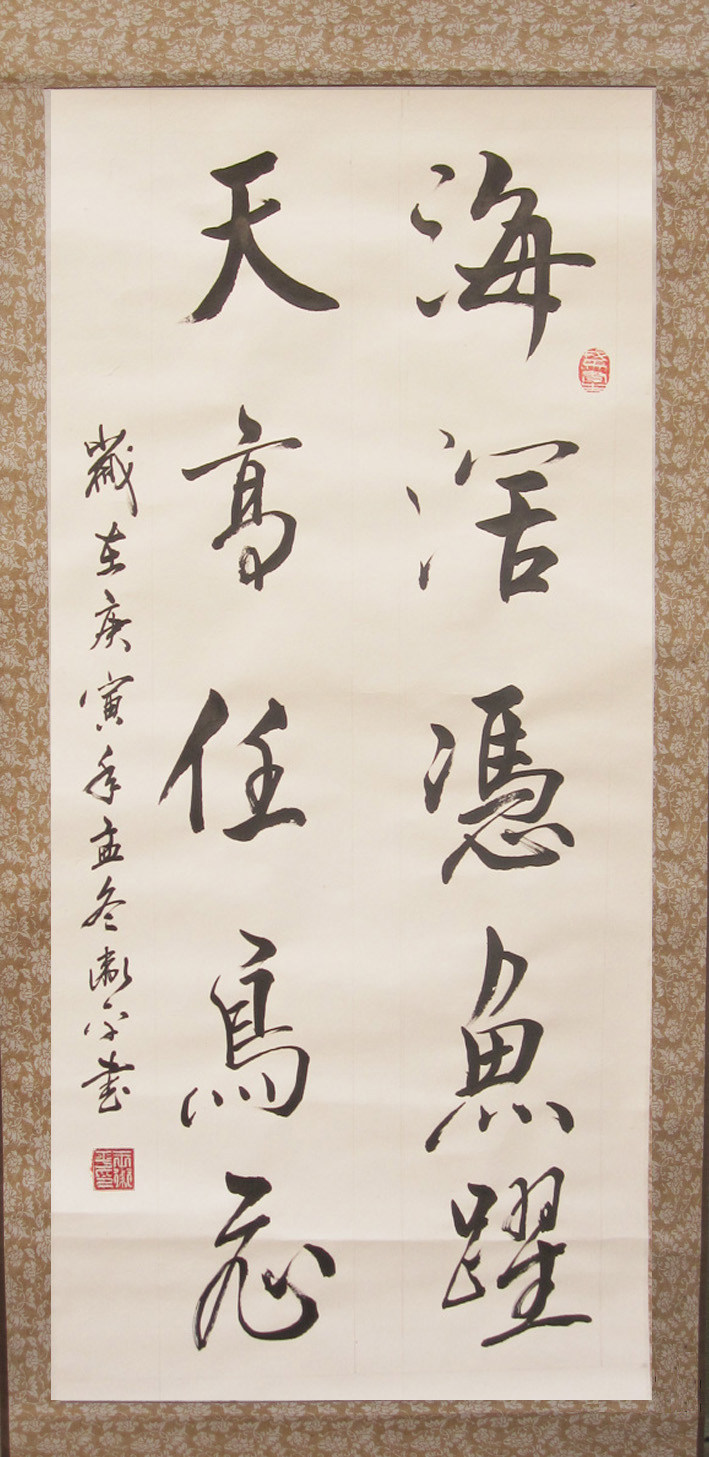 海闊憑魚躍
天高任鳥飛
歲在庚寅年孟冬漱平書